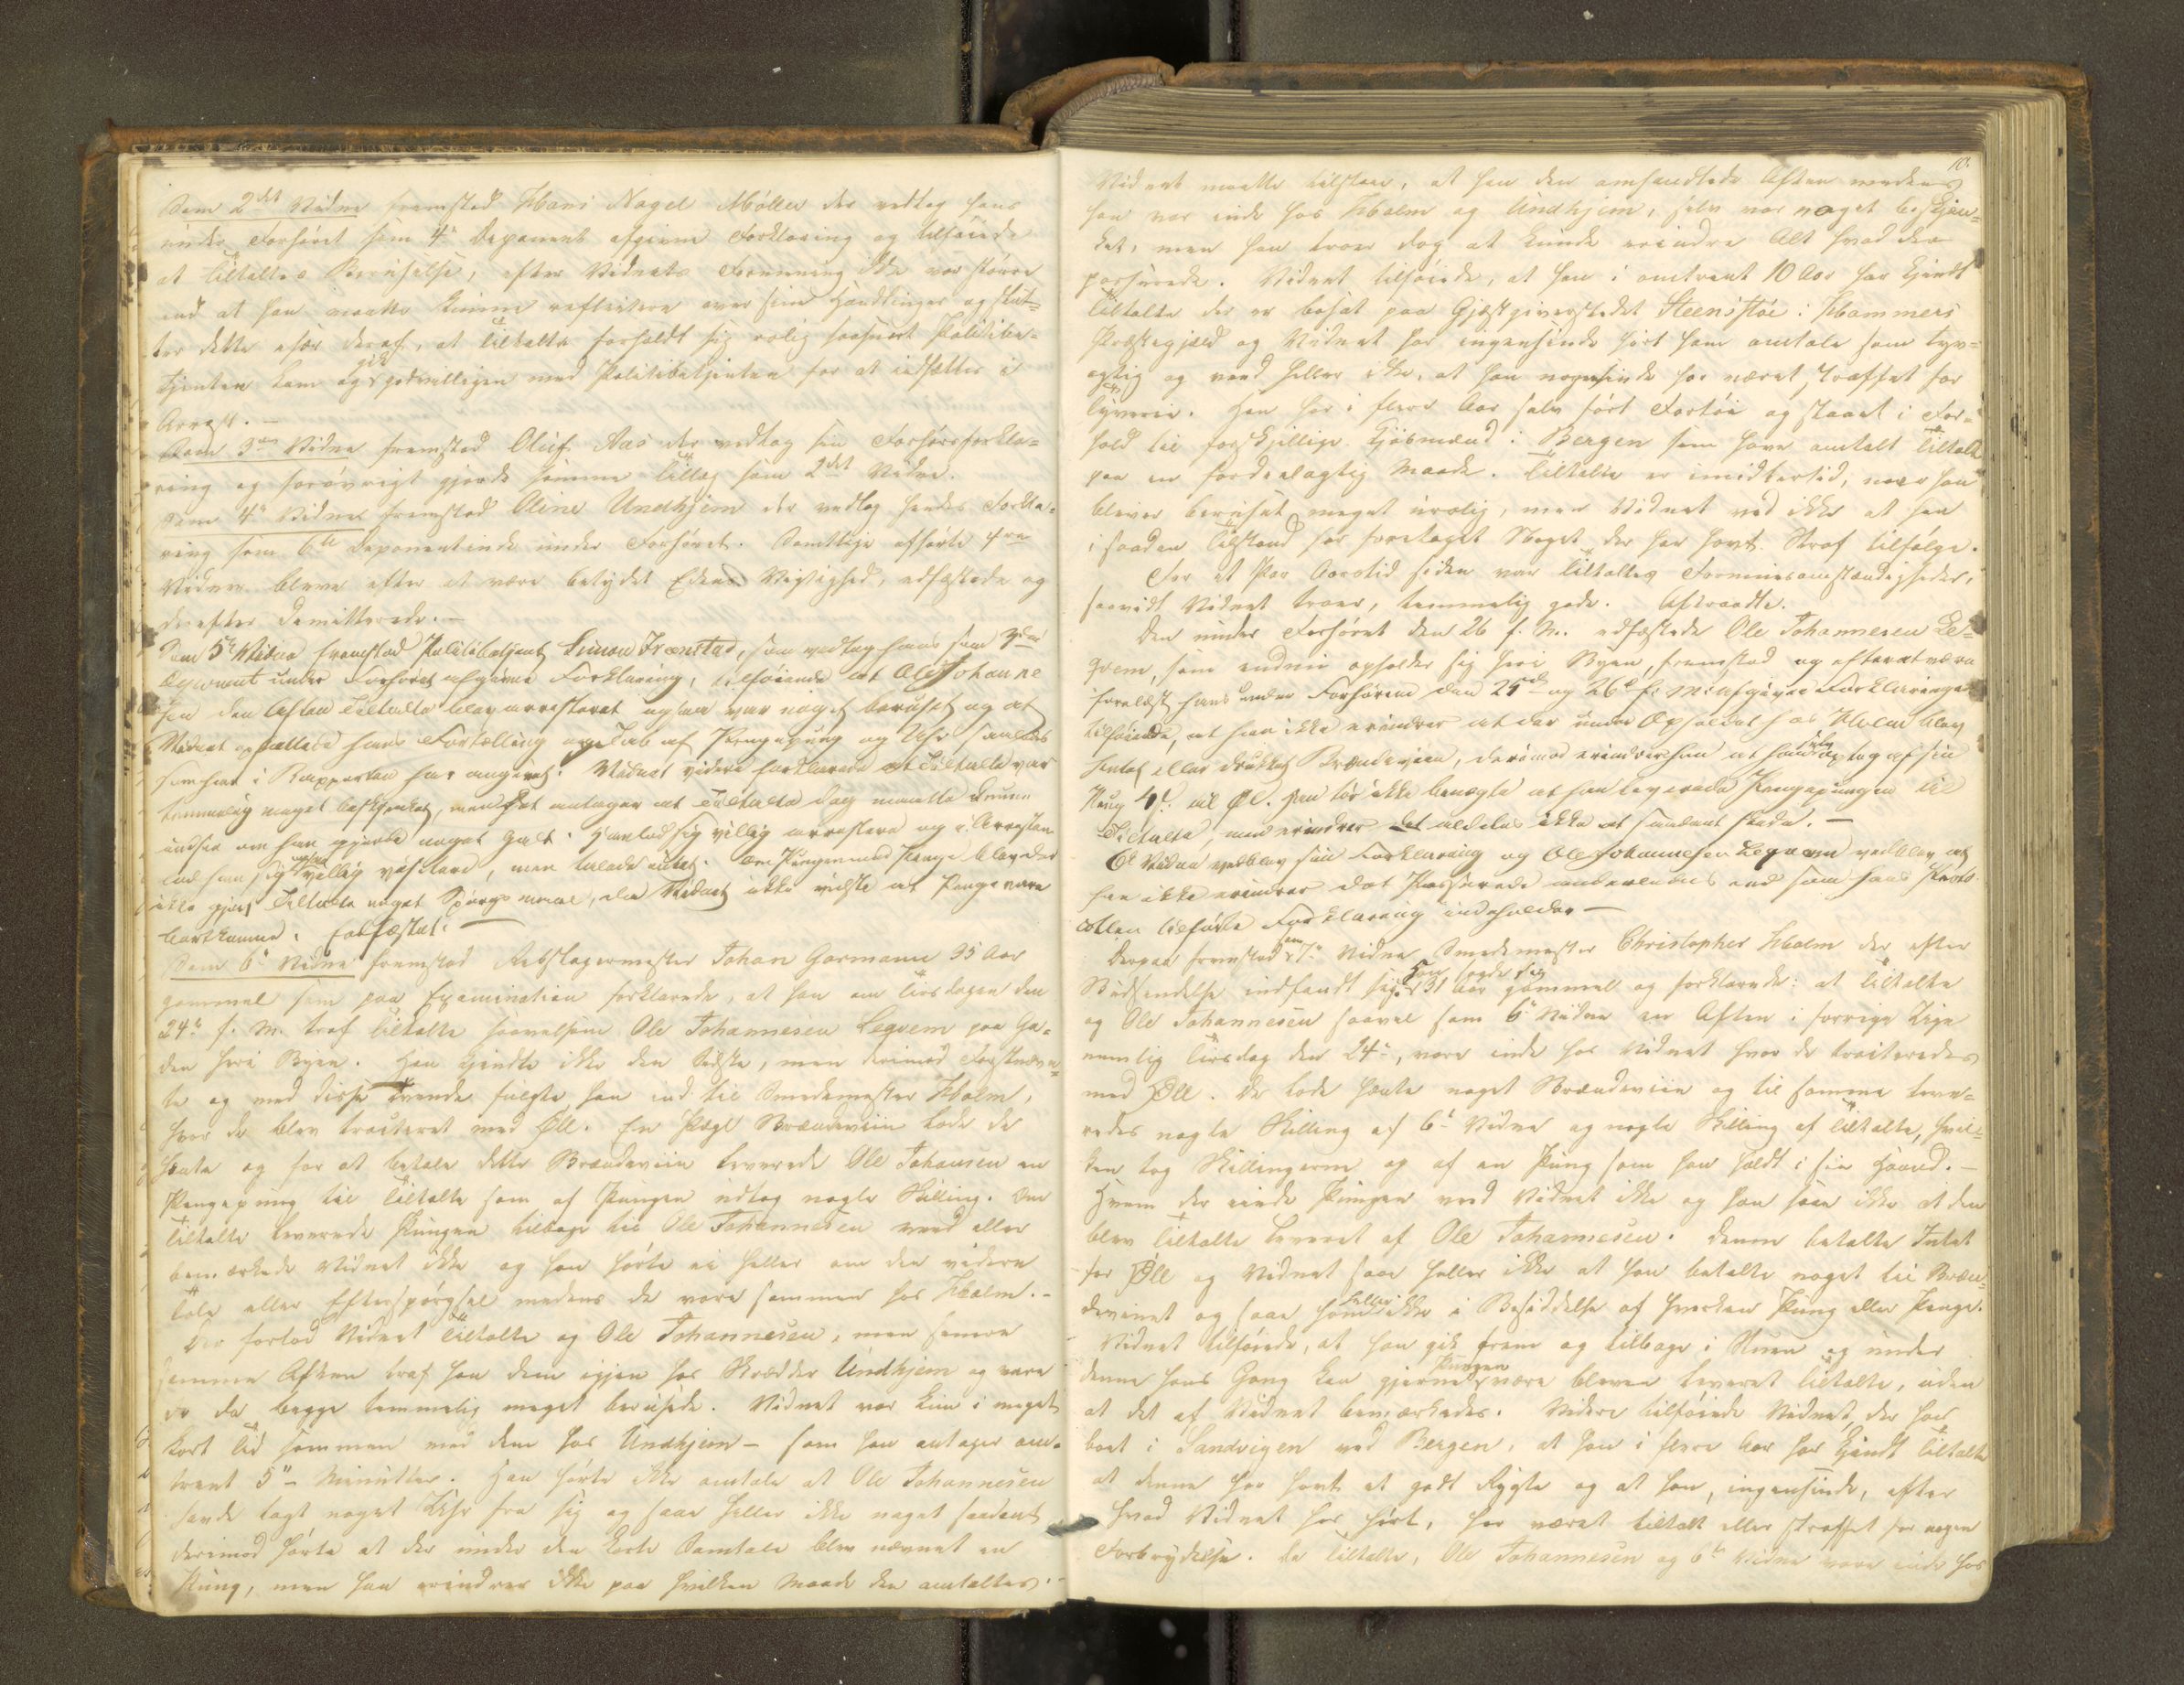 Som 2det Vidne fremstod Hans Nagel Møller der vedtog hans
under Forhøret som 4de Deponent afgivne Forklaring og tilføiede
at Tiltaltes Beruselse, efter Vidnets Formening ikke var større
end at han maatte kunne reflectere over sine Handlinger og slut-
ter dette især deraf, at Tiltalte forholdt sig rolig saasnart Politibe-
tjenten kom og gik godvilligen med Politibetjenten for at indsættes i
Arrest. —
Som 3die Vidne fremstod Oluf Aas der vedtog sin Forhørsforkla-
ring og forøvrigt gjorde samme Tillæg som 2det Vidne.
Som 4de Vidne fremstod Oline Undhjem der vedtog hendes Forkla-
ring som 6te Deponentinde under Forhøret. Samtlige afhørte fra
Vidner bleve efter at være betydet Edens Vigtighed, edfæstede og
derefter demitterede. —
Som 5te Vidne fremstod Politibetjent Simon Frænstad, som vedtog hans som 3die
Deponent under Forhøret afgivne Forklaring, tilføiende at Ole Johanne
sen den Aften Tiltalte blev arresteret ogsaa var noget beruset og at
Vidnet opfattede hans Fortælling om Tab af Pengepung og Uhr saaledes
som han i Rapporten har angivet. Vidnet videre forklarede at Tiltalte var
temmelig meget beskjenket, men at antager at Tiltalte dog maatte kunne
indsee om han gjorde noget galt. Han lod sig villig arrestere og i Arresten
lod han sig ogsaa villig visitere, men talede intet om Pungen med Penge blev der
ikke gjort Tiltalte noget Spørgsmaal, da Vidnet ikke vidste at Penge være
bortkomne. Edfæstet. —
Som 6te Vidne fremstod Rebslagermester Johan Gormann 35 Aar
gammel som paa Examination forklarede, at han om Tirsdagen den
24de f. M. traf Tiltalte saavelsom Ole Johannesen Leqvem paa Ga-
den heri Byen. Han kjendte ikke den Sidste, men derimod Førstnævn-
te og med disse tvende fulgte han ind til Smedemester Holm,
hvor de blev tracteret med Øll. En Pægl Brændeviin lode de
hente og for at betale dette Brændeviin leverede Ole Johansen en
Pengepung til Tiltalte som af Pungen udtog nogle Skilling. Om
Tiltalte leverede Pungen tilbage til Ole Johannesen veed eller
bemærkede Vidnet ikke og han hørte ei heller om den videre
Tale eller Efterspørgsel medens de vare sammen hos Holm. -
Der forlod Vidnet Tiltalte og Ole Johannesen, men senere
samme Aften traf han dem igjen hos Skrædder Undhjem og vare
de da begge temmelig meget berusede. Vidnet var kun i meget
kort Tid sammen med dem hos Undhjem — som han antager om-
trent 5" Minutter. Han hørte ikke omtale at Ole Johannesen
havde tagt noget Uhr fra sig og saae heller ikke noget saadant
derimod hørte at der under den korte Samtale blev nævnet en
Pung, men han erindrer ikke paa hvilken Maade den omtaltes. -
10.
Vidnet maatte tilstaae, at han den omhandlede Aften medens
han var inde hos Holm og Undhjem, selv var noget beskjæn-
ket, men han troer dog at kunde erindre Alt hvad der
passerede. Vidnet tilføiede, at han i omtrent 10 Aar har kjendt
Tiltalte der er bosat paa Gjæstgiverstedet Steenstøe i Hammers
Præstegjæld og Vidnet har ingensinde hørt ham omtale som tyv-
agtig og veed heller ikke, at han nogensinde har været straffet for
Tyverie. Han har i flere Aar selv ført Fartøi og staaet i For-
hold til forskjellige Kjøbmænd i Bergen som have omtalt Tiltalte
paa en fordeelagtig Maade. Tiltalte er imidlertid, naar han
bliver beruset meget urolig, men Vidnet ved ikke at han
i saadan Tilstand har foretaget Noget der har havt Straf tilfølge.
For et Par Aarstid siden var Tiltaltes Formuesomstændigheder,
saavidt Vidnet troer, temmelig gode. Aftraadte.
Den under Forhøret den 26 f. M. edfæstede Ole Johannesen Le-
qvem, som endnu opholder sig heri Byen, fremstod og efterat være
forelæst hans under Forhørene den 25de og 26de f. M. afgivne Forklaringer
tilføiede, at han ikke erindrer at der under Opholdet hos Holm blev
hentet eller drukket Brændeviin, derimod erindrer han at han selv optog af sin
Pung 4 s. til Øl. Han tør ikke benægte at han leverede Pengepungen til
Tiltalte, men erindrer det aldeles ikke at saadant skede. —
6te Vidne vedblev sin Forklaring og Ole Johannesen Leqvem vedblev at
han ikke erindrer det Passerede anderledes end som hans Proto-
collen tilførte Forklaring indeholder —
Derpaa fremstod som 7de Vidne Smedemester Christopher Holm der efter
Budsendelse indfandt sig. Han sagde sig 31 Aar gammel og forklarede: at Tiltalte
og Ole Johannesen saavel som 6te Vidne en Aften i forrige Uge
nemlig Tirsdag den 24de, vare inde hos Vidnet hvor de tracteredes
med Øll. De lode hente noget Brændeviin og til samme leve-
redes nogle Skilling af 6te Vidne og nogle Skilling af Tiltalte, hvil-
ken tog Skillingerne og af en Pung som han holdt i sin Haand. —
Hvem der eiede Pungen veed Vidnet ikke og han saae ikke at den
blev Tiltalte leveret af Ole Johannesen. Denne betalte Intet
for Øll og Vidnet saae heller ikke at han betalte noget til Bræn-
devinet og saae ham heller ikke i Besiddelse af hverken Pung eller Penge.
Vidnet tilføiede, at han gik frem og tilbage i Stuen og under
denne hans Gang kan gjerne Pungen være bleven leveret Tiltalte, uden
at det af Vidnet bemærkedes. Videre tilføiede Vidnet, der har
boet i Sandvigen ved Bergen, at han i flere Aar har kjendt Tiltalte
at denne har havt et godt Rygte og at han, ingensinde, efter
hvad Vidnet har hørt, har været tiltalt eller straffet for nogen
Forbrydelse. Da Tiltalte, Ole Johannesen og 6te Vidne vare inde hos